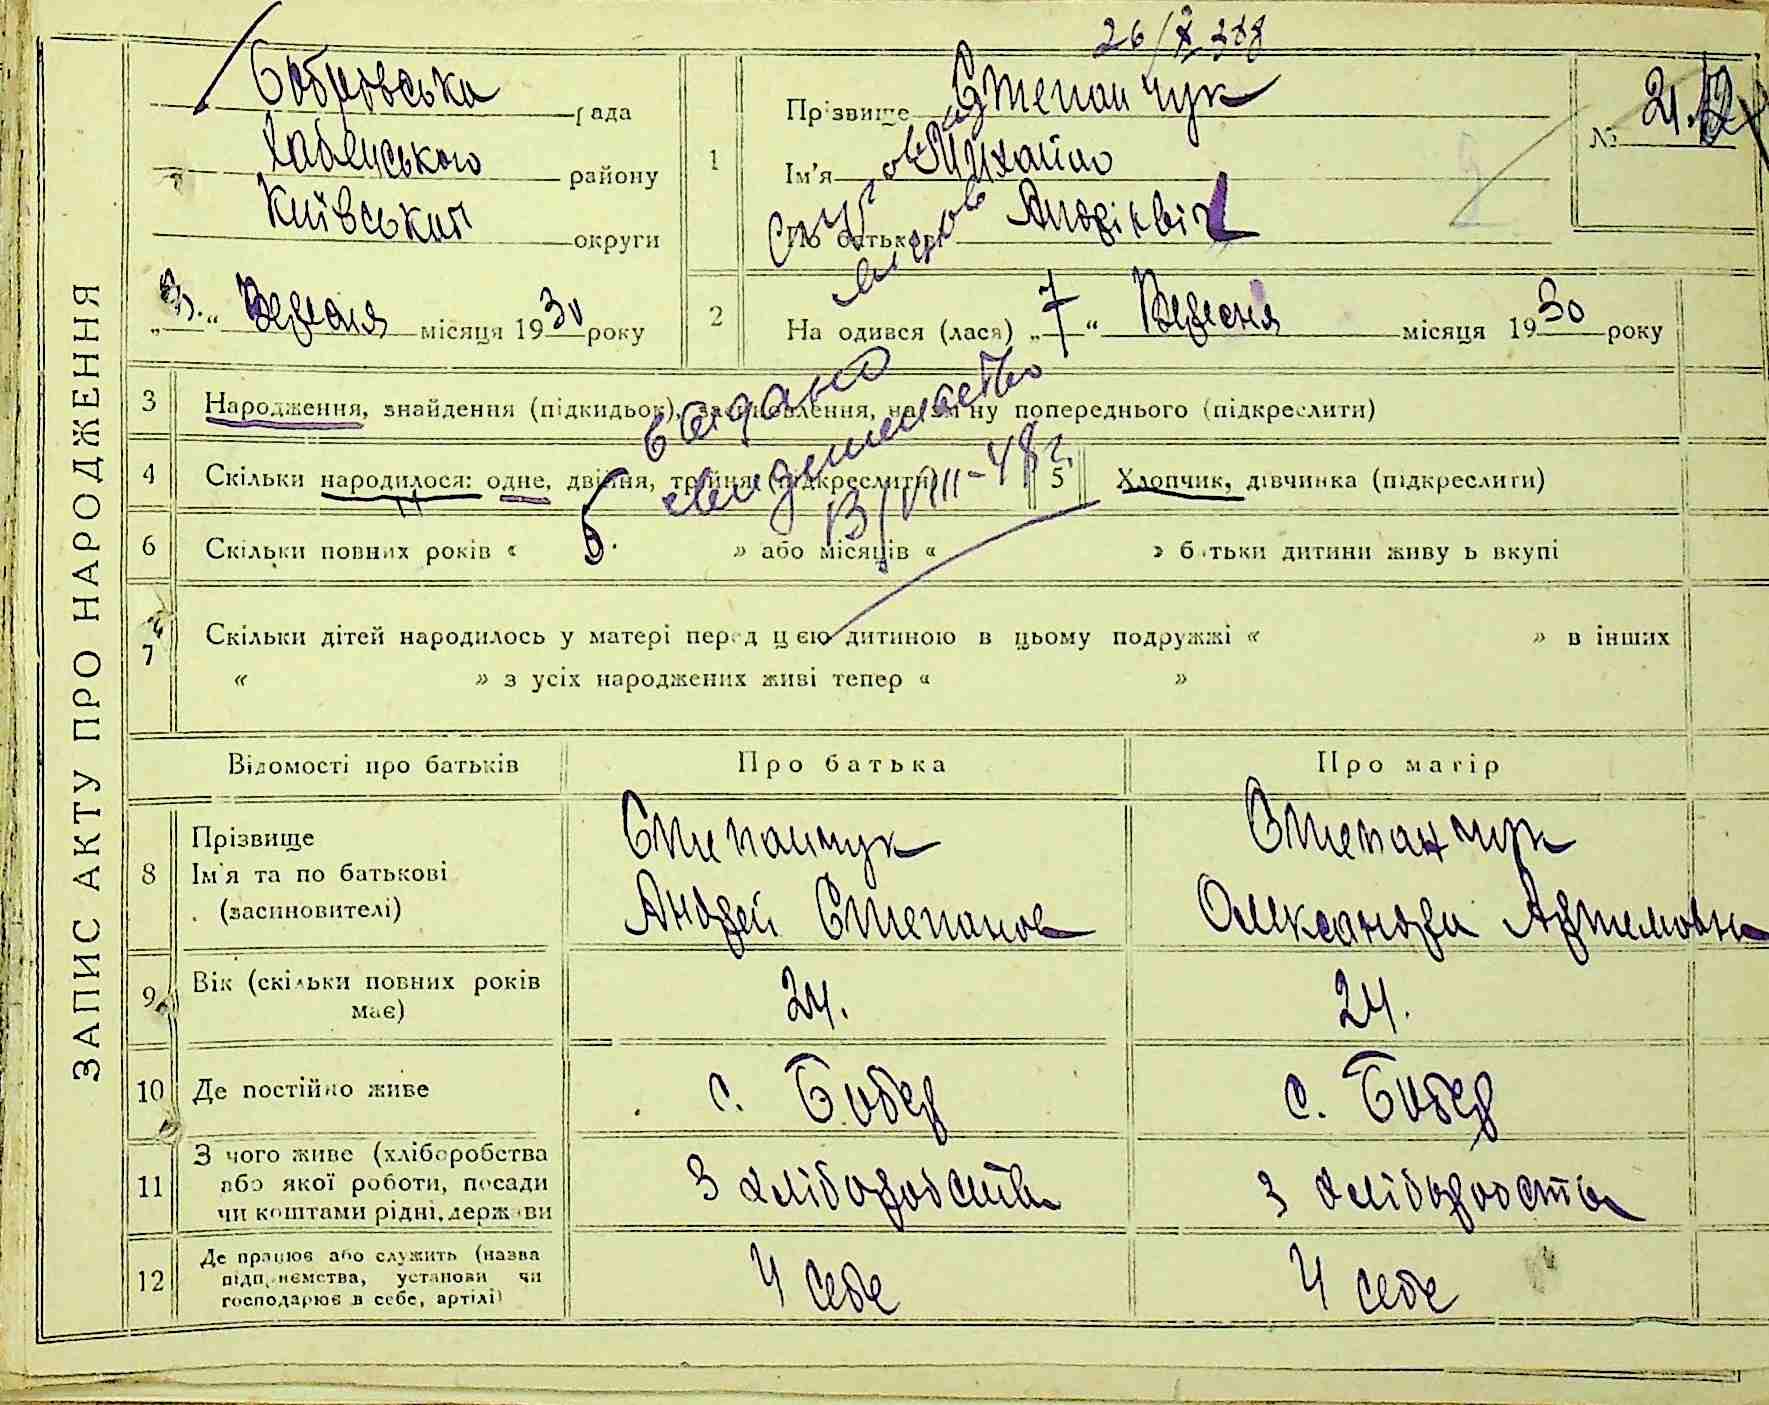 26/X 38
Бобрівська рада
Хабенського району
Київський округи
„3.“ Вересня місяця 1930 року
ЗАПИС АКТУ ПРО НАРОДЖЕННЯ
1
Прізвище Степанчук
Ім'я Михайло
По батькові Андрієвіч
№ 21.
2
Народився (лася) „7“ Вересня місяця 1930 року
3 Народження, знайдення (підкидьок), засиновлення, на зміну попереднього (підкреслити)
выдано
свидетельство
13/VIII-48 г.
4 Скільки народилося: одне, двійня, трійня (підкреслити)
5 Хлопчик, дівчинка (підкреслити)
6 Скільки повних років « 6. » або місяців « » батьки дитини живуть вкупі
7 Скільки дітей народилось у матері перед цією дитиною в цьому подружжі « » в інших
« » з усіх народжених живі тепер « »
Відомості про батьків Про батька Про матір
8 Прізвище
Ім'я та по батькові
(засиновителі)
Степанчук
Андрей Степанов
Степанчук
Олександра Артемовна
9 Вік (скільки повних років
має)
24. 24.
10 Де постійно живе с. Бобер с. Бобер
11 З чого живе (хліборобства
або якої роботи, посади
чи коштами рідні, держави
З хліборобства з хліборобства
12 Де працює або служить (назва
підприємства, установи чи
господарює в себе, артілі)
У себе У себе